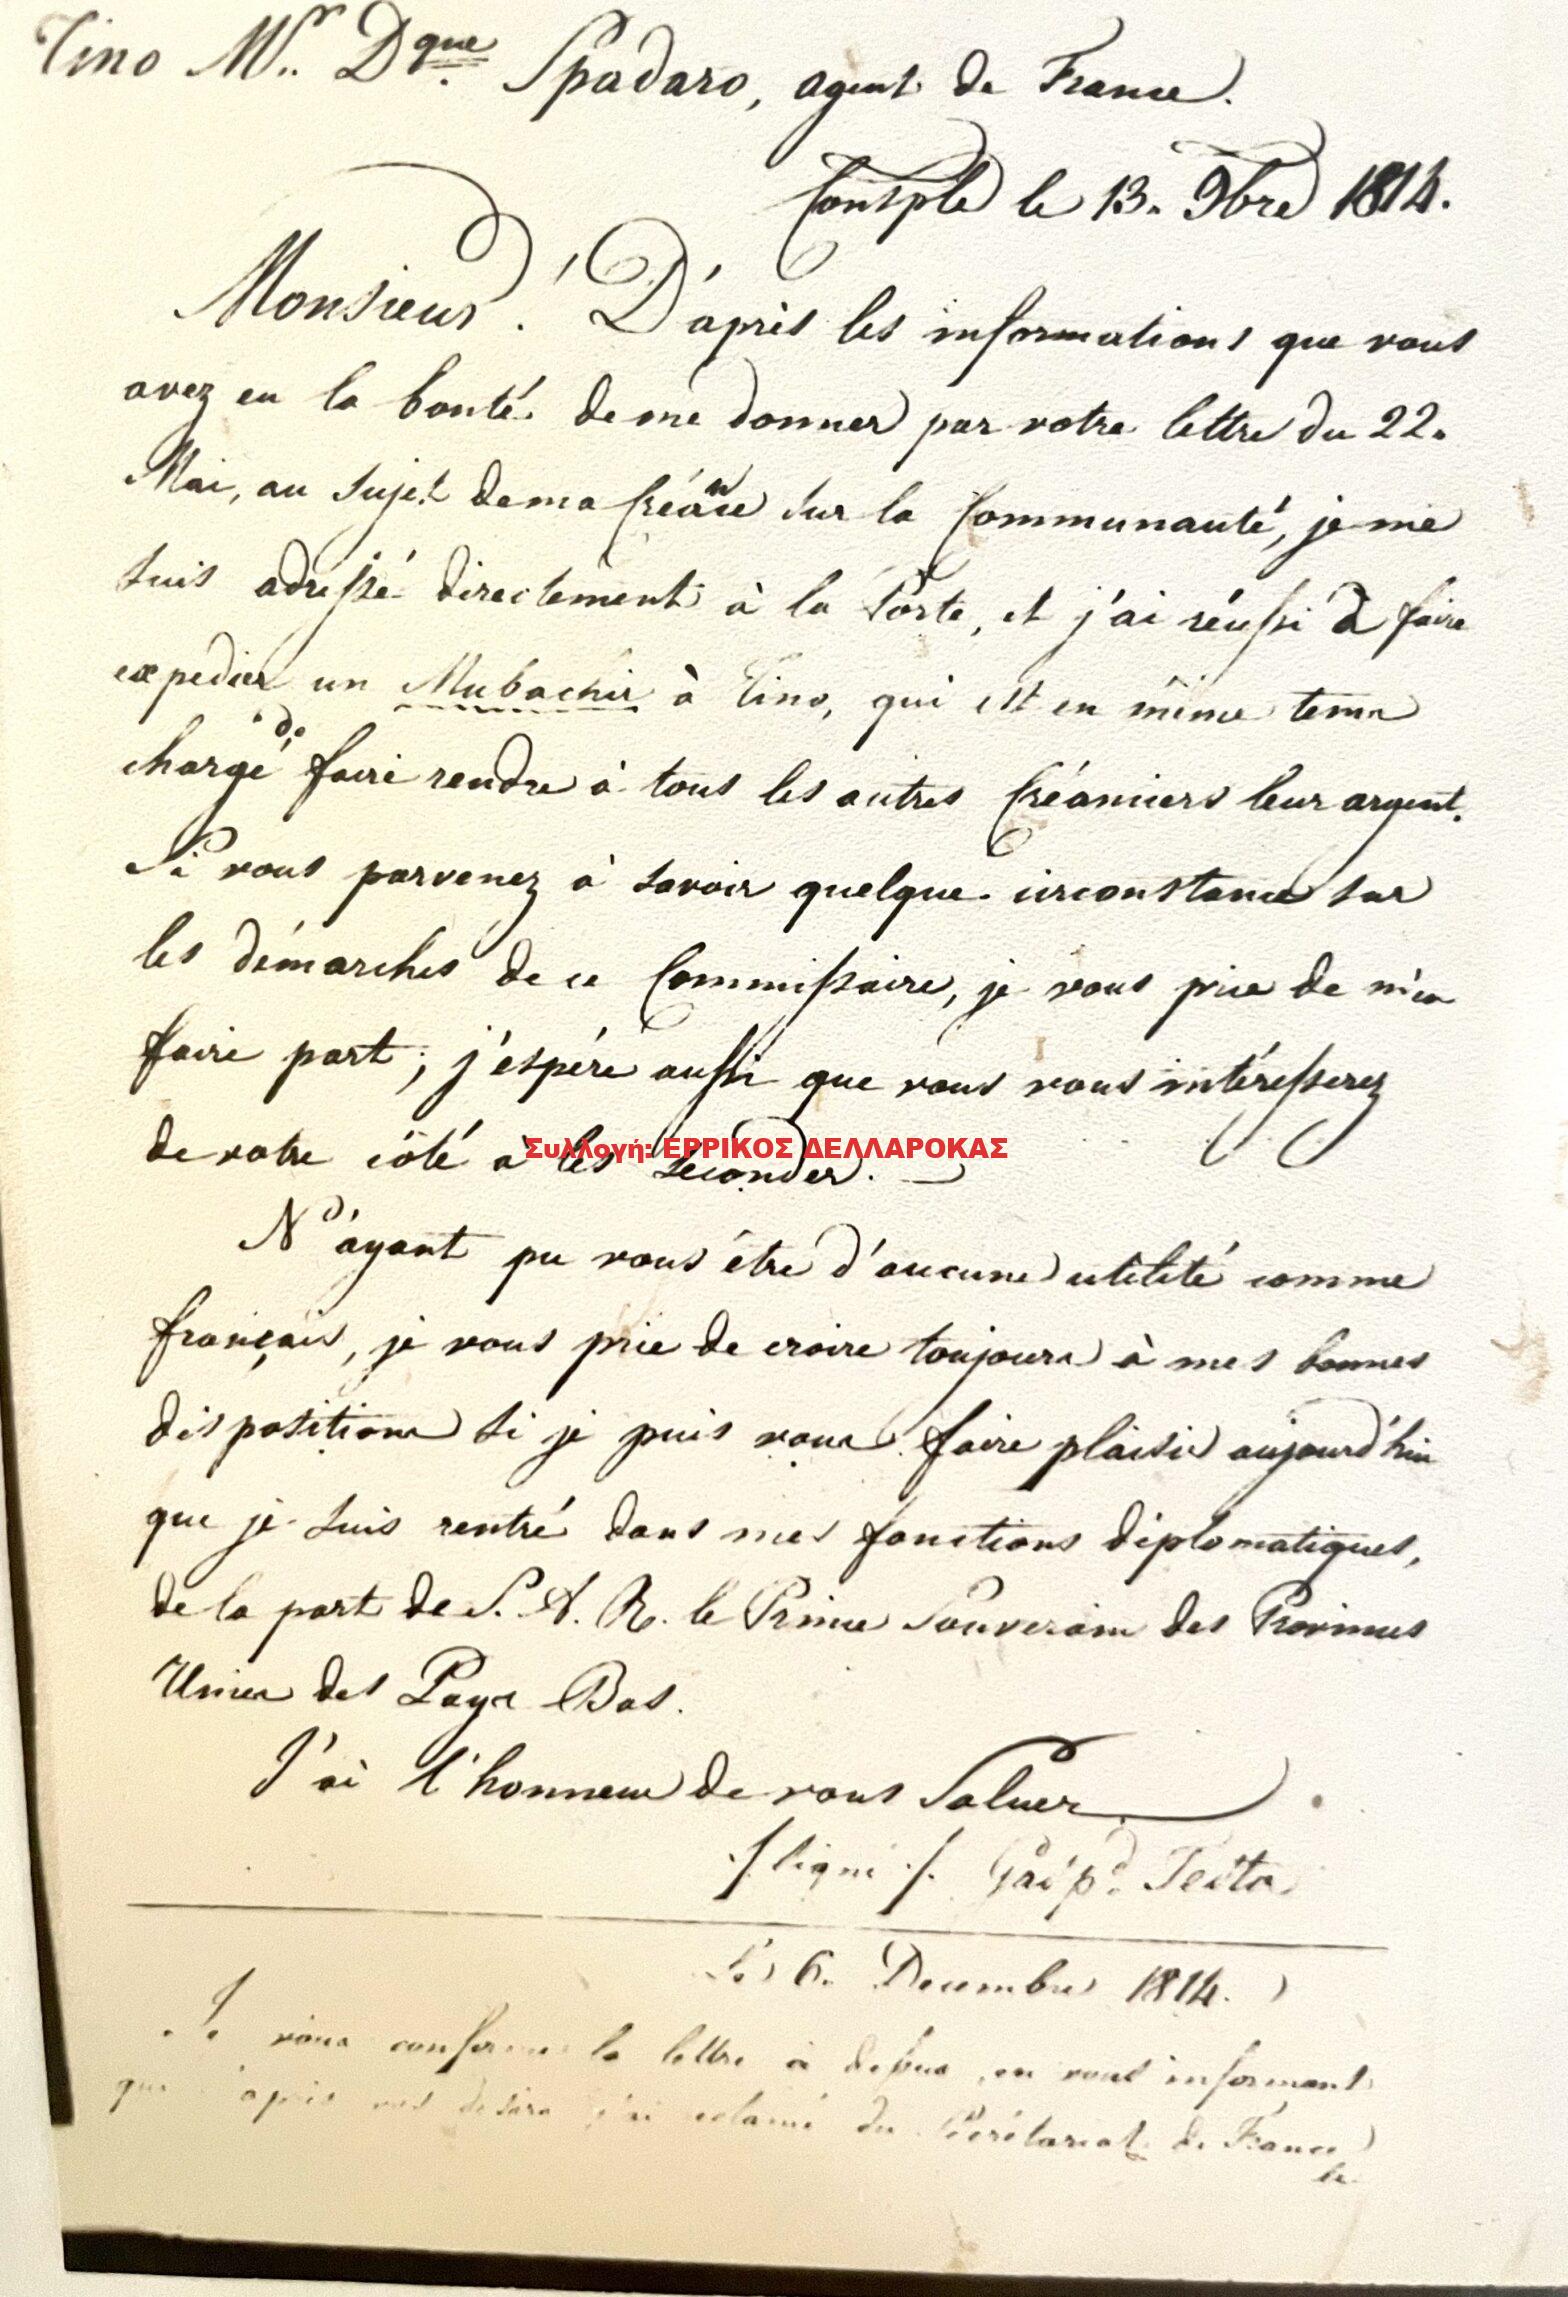 Tino Mr. Dque Spadaro, agent de France.
Constple le 13. 9bre 1814.
Monsieur. D'après les informations que vous
avez eu la bonté de me donner par votre lettre du 22.
Mai, au sujet de ma Créance sur la Communauté, je me
suis adressé directement à la Porte, et j'ai réussi à faire
expedier un Mubachir à Tino, qui est en même tems
chargé de faire rendre à tous les autres Créanciers leur argent.
Si vous parvenez à savoir quelque circonstance sur
les démarches de ce Commissaire, je vous prie de m'en
faire part; j'espére aussi que vous vous intéresserez
de votre côté à les seconder.
Συλλογή: ΕΡΡΙΚΟΣ ΔΕΛΛΑΡΟΚΑΣ
N'ayant pu vous être d'aucune utilité comme
français, je vous prie de croire toujours à mes bonnes
dispositions si je puis vous faire plaisir aujourd'hui
que je suis rentré dans mes fonctions diplomatiques,
de la part de S. A. R. le Prince Souverain des Provinces
Unies des Pays-Bas.
J'ai l'honneur de vous Saluer
./. signé ./. Testa
Le 6. Decembre 1814.
Je vous confirme la lettre ci dessus, en vous informant
que d'après vos desirs j'ai du Secrétariat de France
le